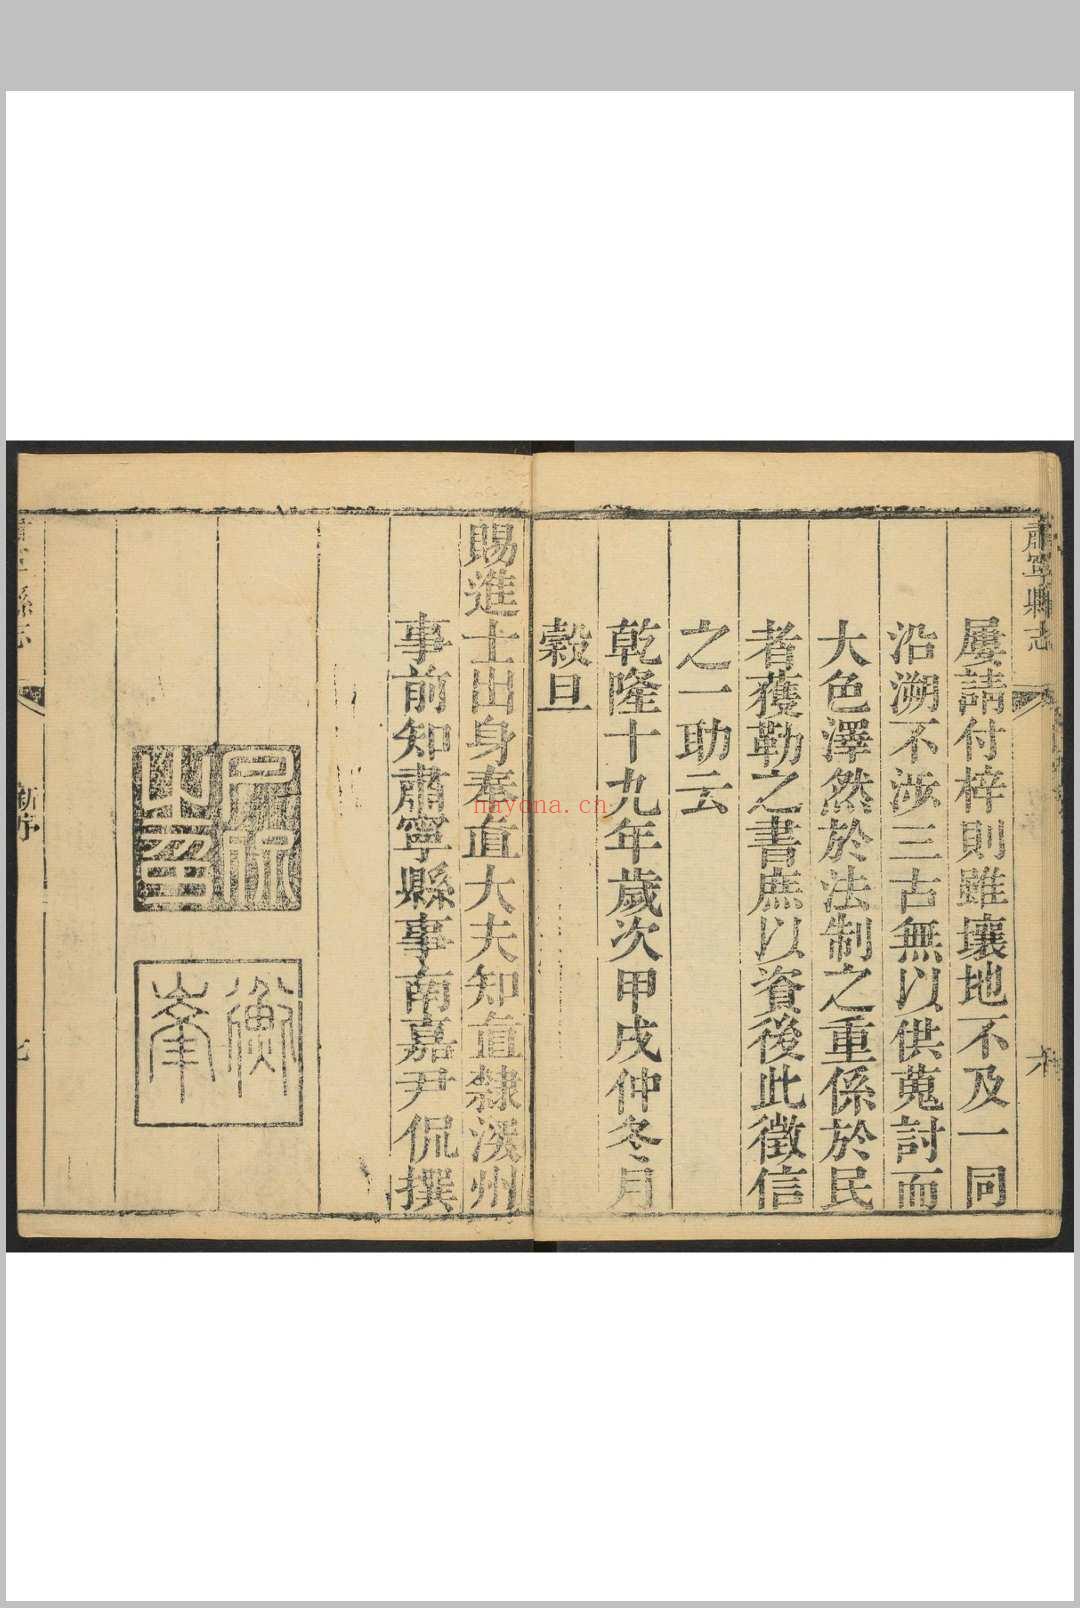 肅寧縣志
屢請付梓則雖壤地不及一同
沿溯不涉三古無以供蒐討而
大色澤然於法制之重係於民
者獲勒之書庶以資後此徵信
之一助云
乾隆十九年歲次甲戌仲冬月
穀旦
賜進士出身奉直大夫知直隸深州
事前知肅寧縣事南嘉尹侃撰
衡峯
新序
nayona.cn